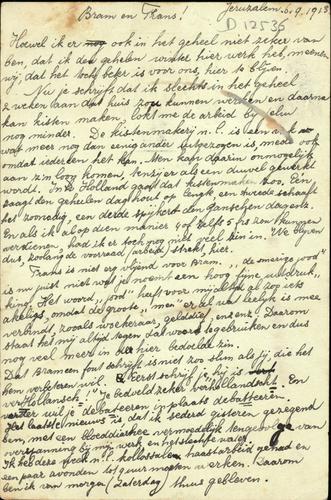 Jeruzalem. 6.9.1913
D 12536
Bram en Frans!
Hoewel ik er nog ook in het geheel niet zeker van
ben, dat ik den geheelen winter hier werk heb, meenen
wij, dat het toch beter is voor ons, hier te blijven.
Nu je schrijft dat ik slechts in het geheel
2 weken aan dat huis zou kunnen werken en daarna
kan kisten maken, lokt me de arbeid bij jelui
nog minder. De kistenmakerij n.l. is een
wat meer nog dan eenig ander uitgezogen is, mede ook
omdat iedereen het kan. Men kan daarin onmogelijk
aan z'n loon komen, tenzij er als een duivel gewerkt
wordt. In Holland gaat dat kistenmaken zoo, één
zaagt den geheelen dag hout op lengte, een tweede schaaft
het zoonodig, een derde spijkert den ganschen dag
En als ik al op dien manier 4 of zelfs 5 hs zou kunnen
verdienen, had ik er toch nog niet veel zin in. We blijven
dus, zoolang de voorraad (arbeid) strekt hier.
Frans is niet erg vleiend voor Bram. „de smerige jood"
is nu juist niet wat je noemt een hoog fijne uitdruk
king. Het woord „jood" heeft voor mij altijd al zoo iets
akeligs, omdat de groote „men" er al wat leelijk is mee
verbindt, zooals woekeraar, geldduivel enz. enz. Daarom
staat het mij altijd tegen dat woord te gebruiken en dus
nog veel meer in de hier bedoelde zin.
Dat Bram een fout schrijft is niet zoo slim als jij, die het
ben verbeteren wil. Eerst schrijf je, hij is
„verHollansch." Je bedoeld zeker verhollandscht. En
verder wil je debateeren in plaats debatteeren.
Het laatste nieuws is dat ik sederd gisteren geregend
ben, met een bloeddiarhee vermoedelijk tengevolge van
overspanning bij m'n werk en het slechte
Ik heb deze week n.l. kollossale haast arbeid gehad en
een paar avonden tot geuur moeten werken. Daarom
ben ik van morgen (Zaterdag) thuis gebleven.